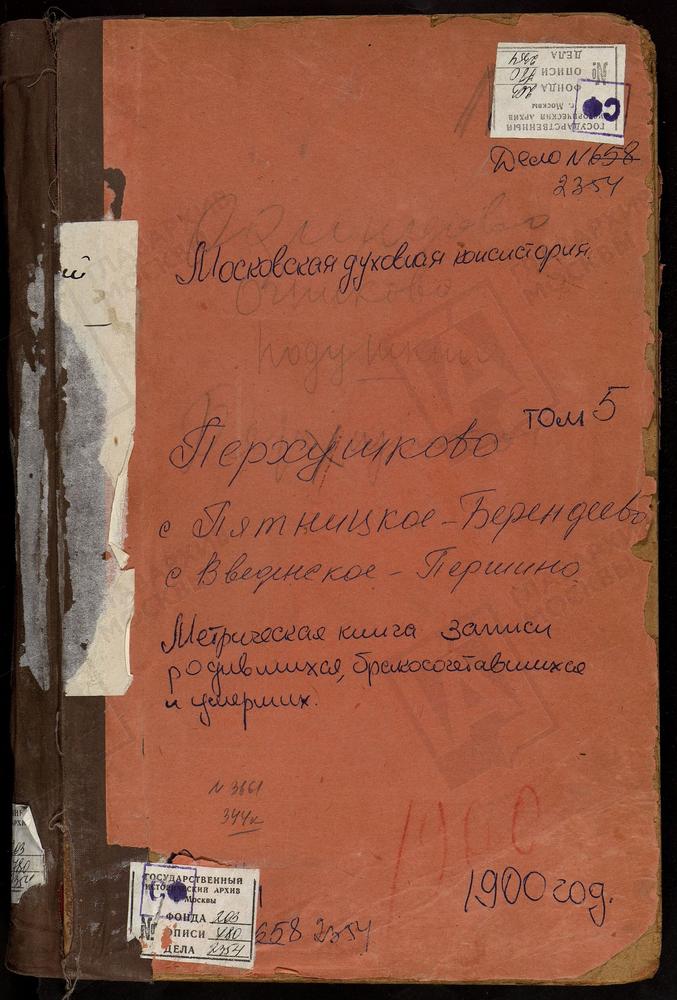 ГОСУДАРСТВЕННЫЙ
ИСТОРИЧЕСКИЙ АРХИВ
г. Москвы
ФОНДА 203
№ ОПИСИ 480
ДЕЛА 2354
СФ
Дело N 658
2354
Одинцово
Московская духовная консистория.
подушкино
том 5
Перхушково
с Пятницкое-Берендеево
с Введенское-Першино
Метрическая книга записи
родившихся, бракосочетавшихся
и умерших.
N 3661
344л
1900
1900 год.
ГОСУДАРСТВЕННЫЙ
ИСТОРИЧЕСКИЙ АРХИВ
г. Москвы
ФОНДА 203
№ ОПИСИ 480
ДЕЛА 2354
658 2354